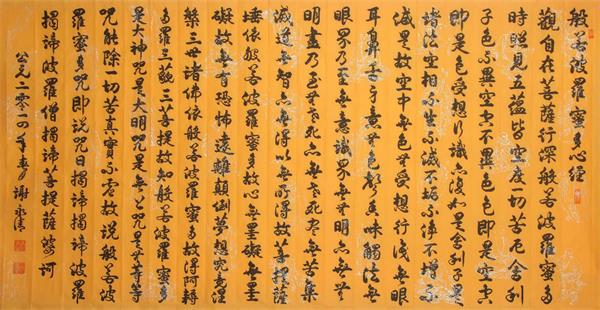 般若波羅蜜多心經
觀自在菩薩行深般若波羅蜜多
時照見五蘊皆空度一切苦厄舍利
子色不異空空不異色色即是空空
即是色受想行識亦復如是舍利子是
諸法空相不生不滅不垢不淨不增不
減是故空中無色無受想行識無眼
耳鼻舌身意無色聲香味觸法無
眼界乃至無意識界無無明亦無無
明盡乃至無老死亦無老死盡無苦集
滅道無智亦無得以無所得故菩提薩
埵依般若波羅蜜多故心無罣礙無罣
礙故無有恐怖遠離顛倒夢想究竟涅
槃三世諸佛依般若波羅蜜多故得阿耨
多羅三藐三菩提故知般若波羅蜜多
是大神咒是大明咒是無上咒是無等等
咒能除一切苦真實不虛故說般若波
羅蜜多咒即說咒曰揭諦揭諦波羅
揭諦波羅僧揭諦菩提薩婆訶
公元二零一〇年春 謝永清